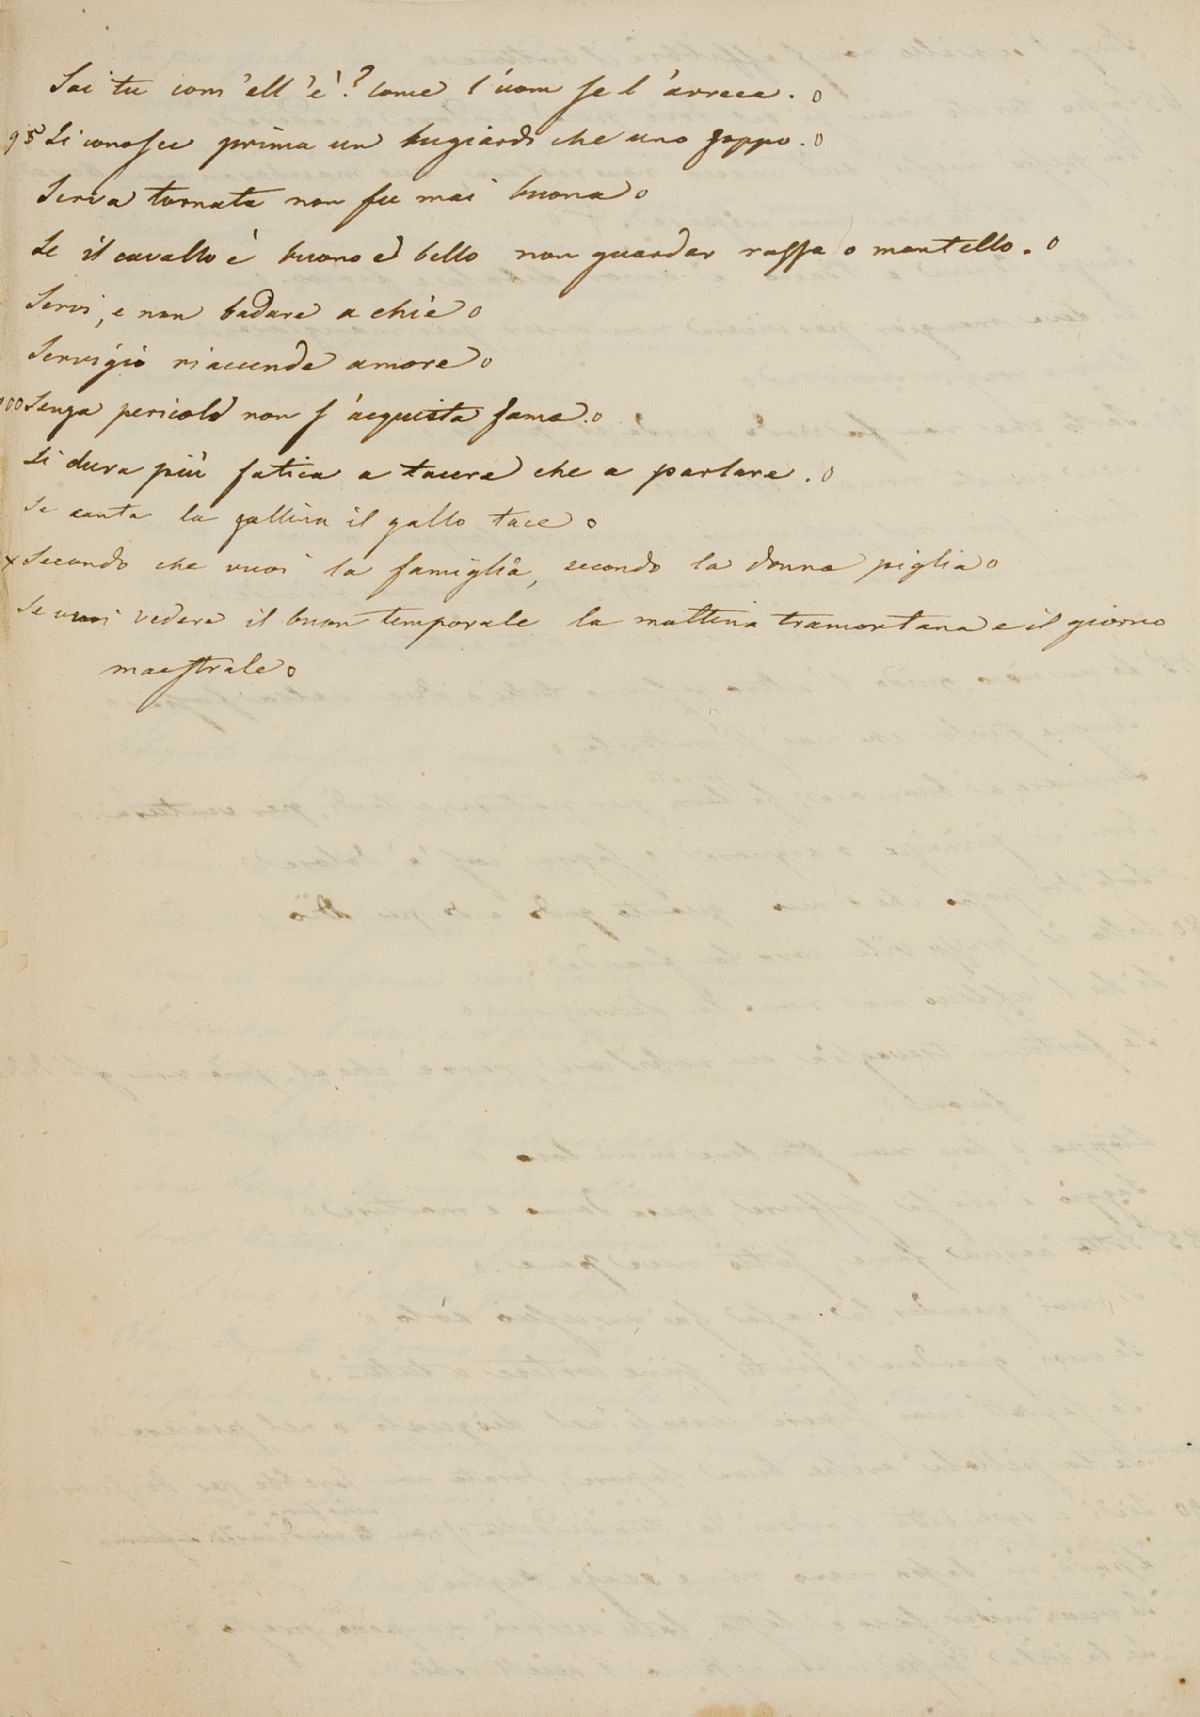 Sai tu com'ell'è? Come l'uom se l'arreca. o
95 Si conosce prima un bugiardo che uno zoppo. o
Serva tornata non fu mai buona o
Se il cavallo è buono e bello non guardar razza o mantello. o
Servi, e non badare a chie o
Servigio riaccende amore o
100 Senza pericolo non s'acquista fama. o
Si dura più fatica a tacere che a parlare. o
Se canta la gallina il gallo tace o
x Secondo che vuoi la famiglia, secondo la donna piglia o
Se vuoi vedere il buon temporale la mattina tramontana e il giorno
maestrale o